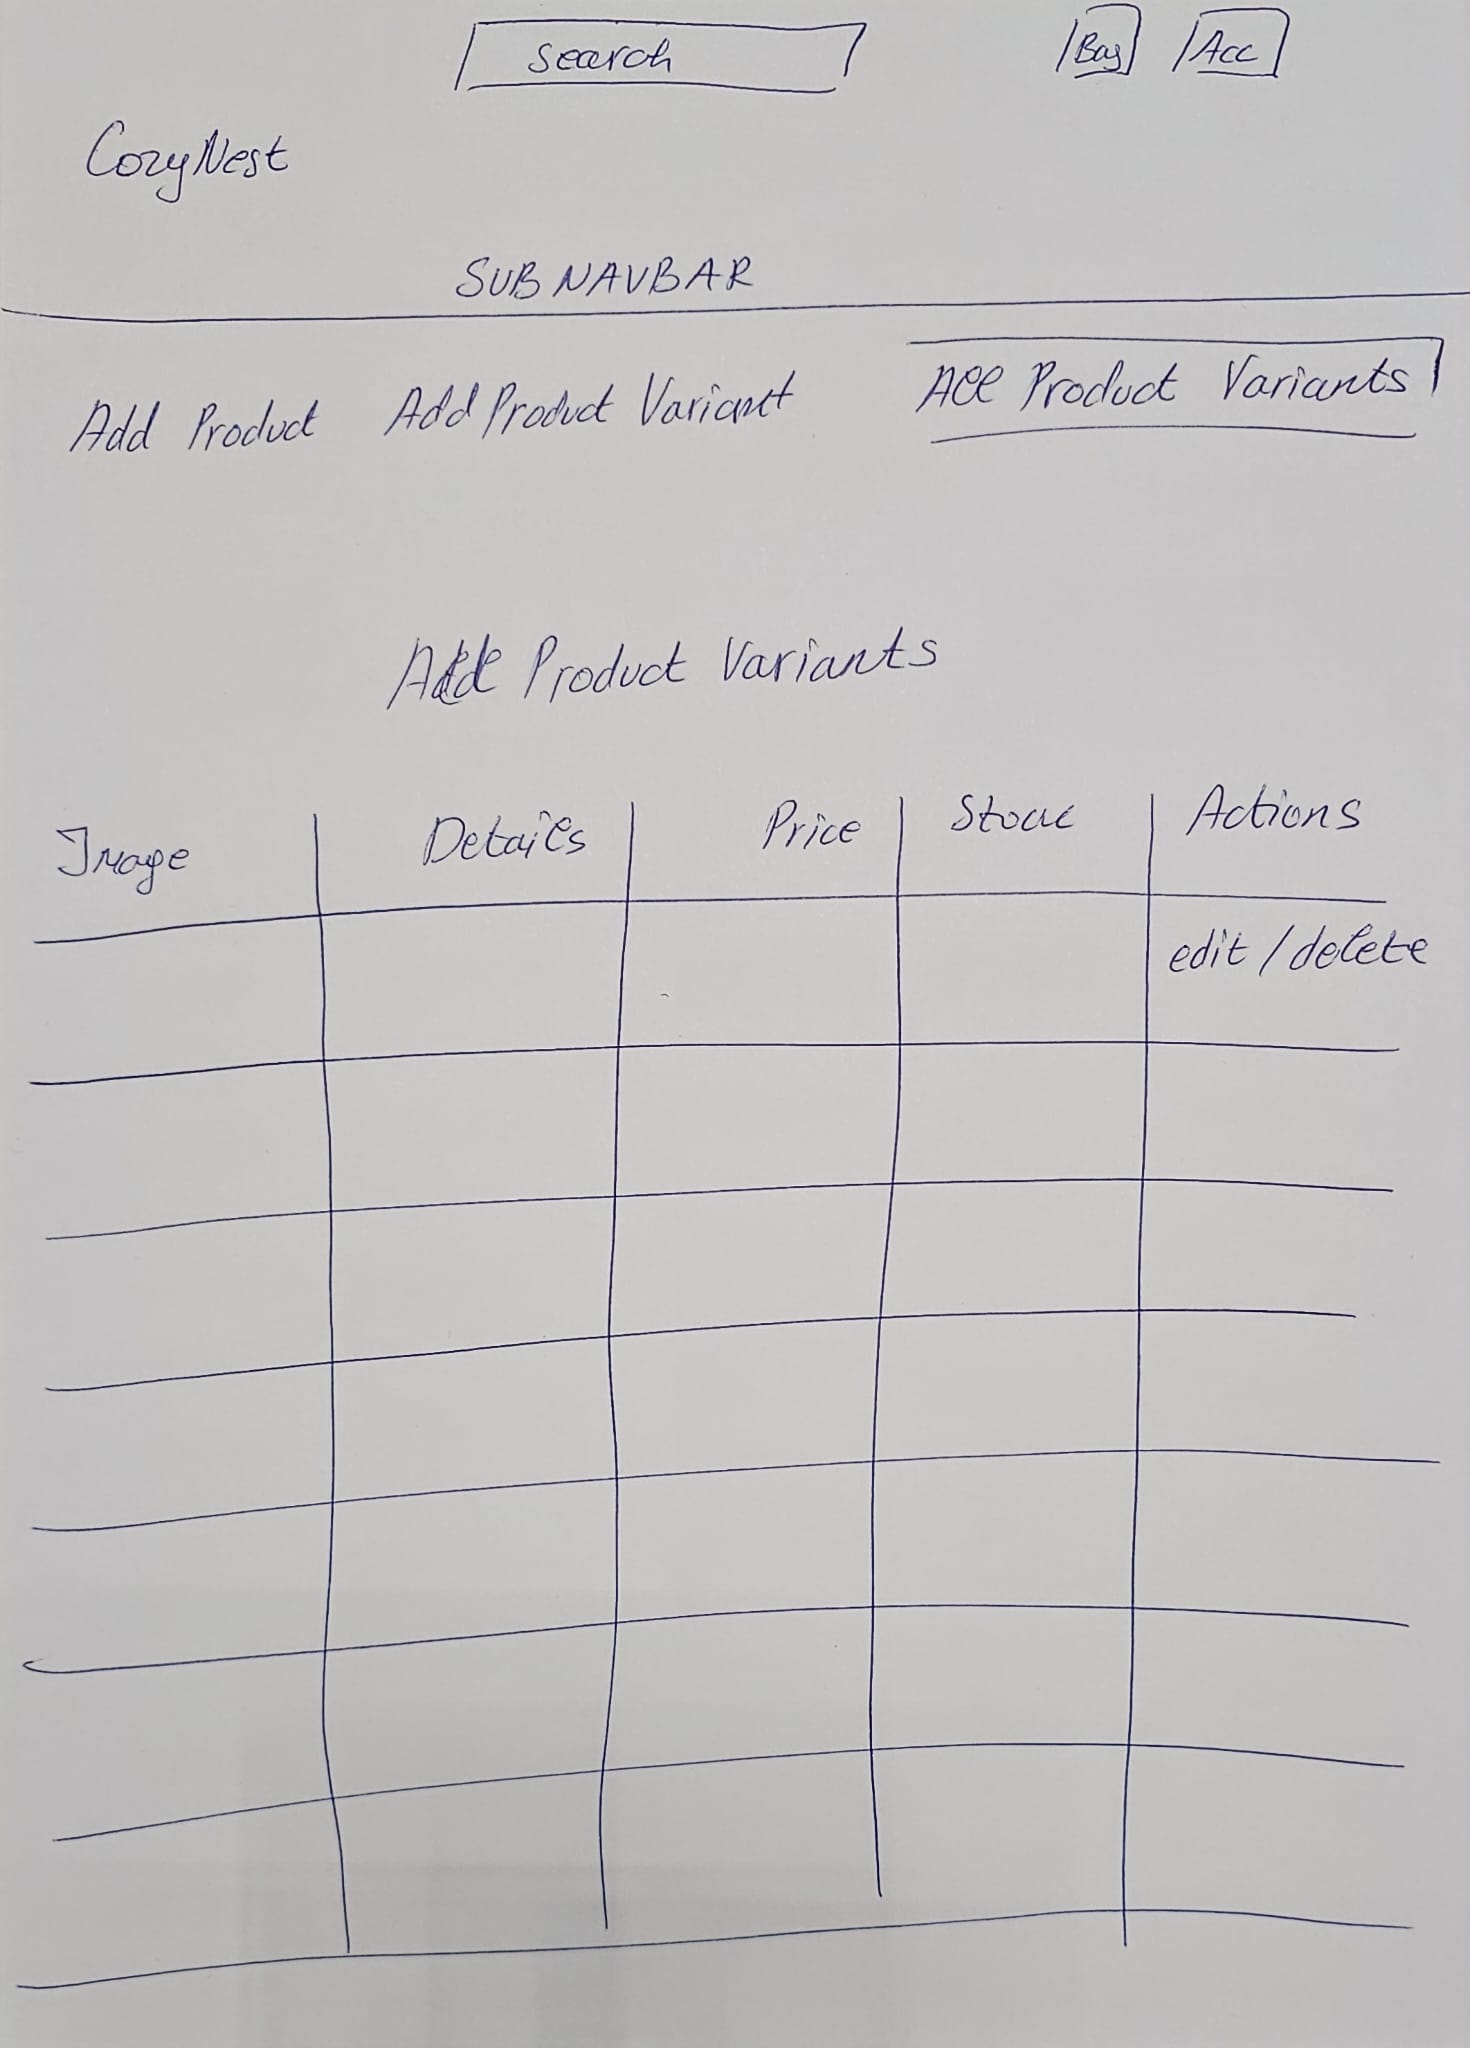 Search Bag Acc
CozyNest
SUB NAVBAR
Add Product Add Product Variant All Product Variants
All Product Variants
Image Details Price Stock Actions
edit / delete